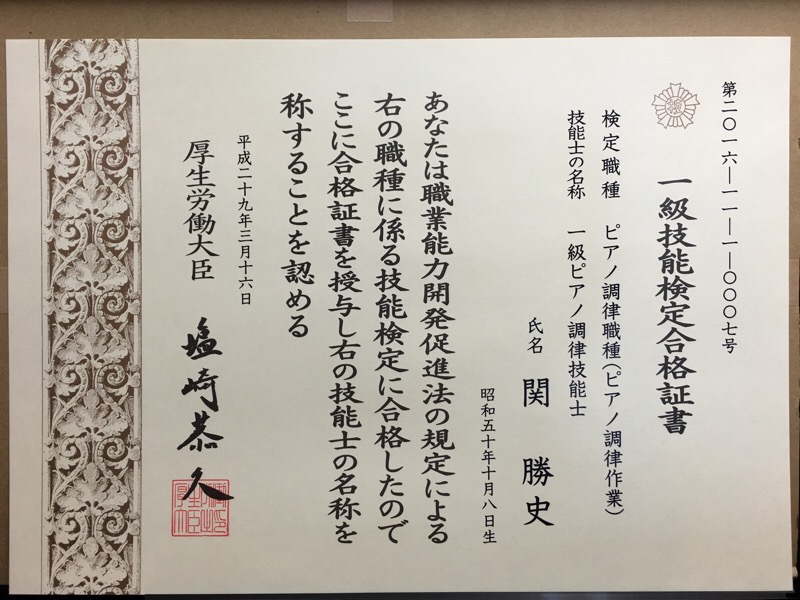 第二〇一六―一一―一―〇〇〇七号
一級技能検定合格証書
検定職種 ピアノ調律職種(ピアノ調律作業)
技能士の名称 一級ピアノ調律技能士
氏名 関 勝史
昭和五十年十月八日生
あなたは職業能力開発促進法の規定による
右の職種に係る技能検定に合格したので
ここに合格証書を授与し右の技能士の名称を
称することを認める
平成二十九年三月十六日
厚生労働大臣 塩崎恭久